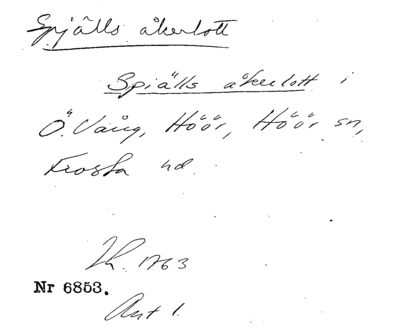 Spjälls åkerlott
Spiälls åkerlott i
Ö. Vång, Höör, Höör sn,
Frosta hd.
Lk. 1763
Nr 6853.
Akt 1.